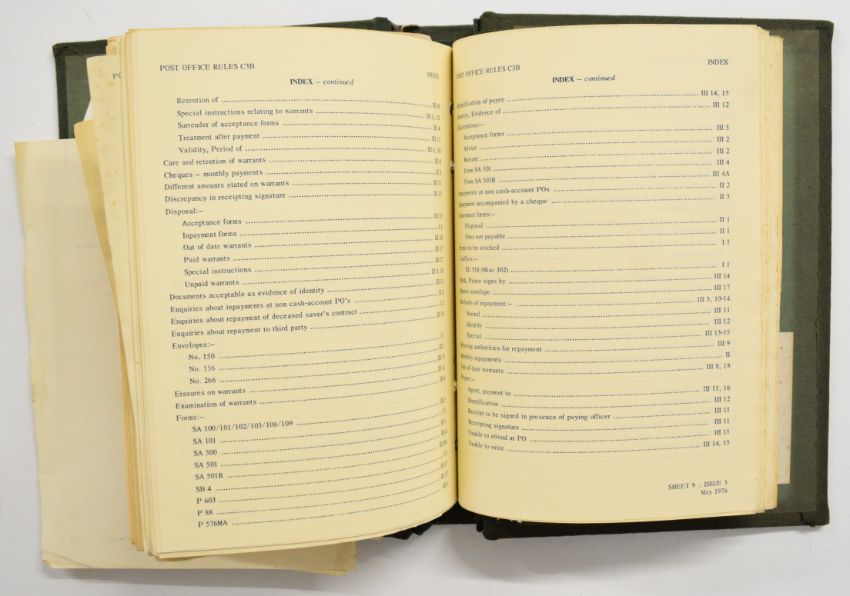 POST OFFICE RULES C3B
INDEX
INDEX – continued
Retention of
Special instructions relating to warrants
Surrender of acceptance forms
Treatment after payment
Validity, Period of
Care and retention of warrants
Cheques – monthly payments
Different amounts stated on warrants
Discrepancy in receipting signature
Disposal:–
Acceptance forms
Inpayment forms
Out of date warrants
Paid warrants
Special instructions
Unpaid warrants
Documents acceptable as evidence of identity
Enquiries about inpayments at non cash-account PO's
Enquiries about repayment of deceased saver's contract
Enquiries about repayment to third party
Envelopes:–
No. 150
No. 156
No. 266
Erasures on warrants
Examination of warrants
Forms:–
SA 100/101/102/103/108/109
SA 101
SA 500
SA 501
SA 501R
SB 4
P 603
P 88
P 576MA
POST OFFICE RULES C3B
INDEX
INDEX – continued
Identification of payee III 14, 15
Identity, Evidence of III 12
Acceptance forms III 5
Advice III 2
Warrant III 2
Form SA 501 III 4
Form SA 501R III 4A
Inpayments at non cash-account POs II 2
Inpayment accompanied by a cheque II 3
Inpayment forms:–
Disposal II 1
Fees not payable II 1
Items to be stocked I 1
Leaflets:–
I 1
signs by III 14
envelope III 17
Methods of repayment:– III 3, 10-14
Normal III 11
Identity III 12
Special III 13-15
Missing authorities for repayment III 9
Monthly inpayments II
Out of date warrants III 8, 18
Agent, payment to III 11, 16
Identification III 12
Receipt to be signed in presence of paying officer III 11
Receipting signature III 11
Unable to attend at PO III 13
Unable to write III 14, 15
SHEET 9 :: ISSUE 3
May 1976